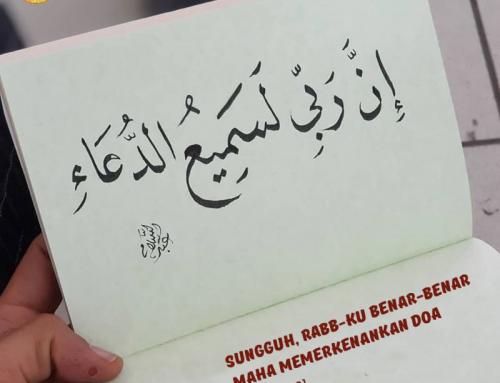 إِنَّ رَبِّي لَسَمِيعُ الدُّعَاءِ
SUNGGUH, RABB-KU BENAR-BENAR
MAHA MEMERKENANKAN DOA